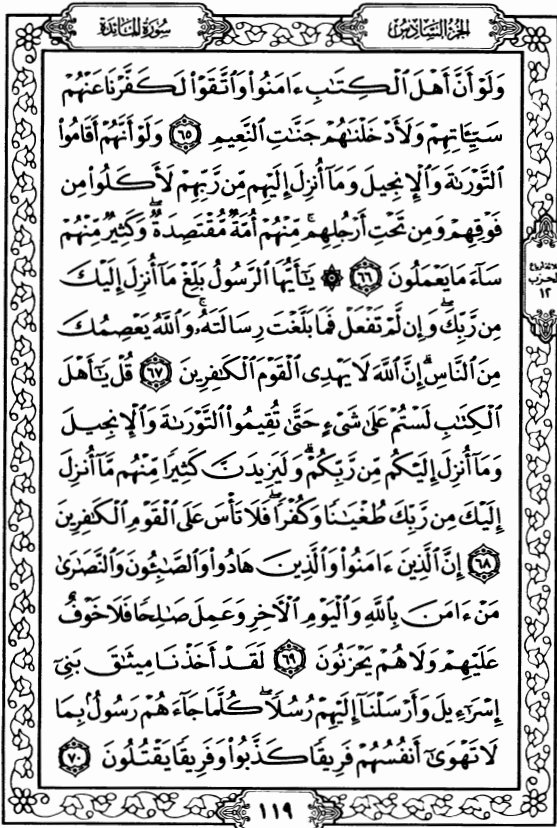 سُورَةُ المَائدة
الجُزءُ السَّادِسُ
وَلَوْ أَنَّ أَهْلَ ٱلْكِتَٰبِ ءَامَنُوا۟ وَٱتَّقَوْا۟ لَكَفَّرْنَا عَنْهُمْ
سَيِّـَٔاتِهِمْ وَلَأَدْخَلْنَٰهُمْ جَنَّٰتِ ٱلنَّعِيمِ ﴿٦٥﴾ وَلَوْ أَنَّهُمْ أَقَامُوا۟
ٱلتَّوْرَىٰةَ وَٱلْإِنجِيلَ وَمَآ أُنزِلَ إِلَيْهِم مِّن رَّبِّهِمْ لَأَكَلُوا۟ مِن
فَوْقِهِمْ وَمِن تَحْتِ أَرْجُلِهِم ۚ مِّنْهُمْ أُمَّةٌ مُّقْتَصِدَةٌ ۖ وَكَثِيرٌ مِّنْهُمْ
سَآءَ مَا يَعْمَلُونَ ﴿٦٦﴾ ۞ يَٰٓأَيُّهَا ٱلرَّسُولُ بَلِّغْ مَآ أُنزِلَ إِلَيْكَ
مِن رَّبِّكَ ۖ وَإِن لَّمْ تَفْعَلْ فَمَا بَلَّغْتَ رِسَالَتَهُۥ ۚ وَٱللَّهُ يَعْصِمُكَ
مِنَ ٱلنَّاسِ ۗ إِنَّ ٱللَّهَ لَا يَهْدِى ٱلْقَوْمَ ٱلْكَٰفِرِينَ ﴿٦٧﴾ قُلْ يَٰٓأَهْلَ
ٱلْكِتَٰبِ لَسْتُمْ عَلَىٰ شَىْءٍ حَتَّىٰ تُقِيمُوا۟ ٱلتَّوْرَىٰةَ وَٱلْإِنجِيلَ
وَمَآ أُنزِلَ إِلَيْكُم مِّن رَّبِّكُمْ ۗ وَلَيَزِيدَنَّ كَثِيرًا مِّنْهُم مَّآ أُنزِلَ
إِلَيْكَ مِن رَّبِّكَ طُغْيَٰنًا وَكُفْرًا ۖ فَلَا تَأْسَ عَلَى ٱلْقَوْمِ ٱلْكَٰفِرِينَ
﴿٦٨﴾ إِنَّ ٱلَّذِينَ ءَامَنُوا۟ وَٱلَّذِينَ هَادُوا۟ وَٱلصَّٰبِـُٔونَ وَٱلنَّصَٰرَىٰ
مَنْ ءَامَنَ بِٱللَّهِ وَٱلْيَوْمِ ٱلْـَٔاخِرِ وَعَمِلَ صَٰلِحًا فَلَا خَوْفٌ
عَلَيْهِمْ وَلَا هُمْ يَحْزَنُونَ ﴿٦٩﴾ لَقَدْ أَخَذْنَا مِيثَٰقَ بَنِىٓ
إِسْرَٰٓءِيلَ وَأَرْسَلْنَآ إِلَيْهِمْ رُسُلًا ۖ كُلَّمَا جَآءَهُمْ رَسُولٌۢ بِمَا
لَا تَهْوَىٰٓ أَنفُسُهُمْ فَرِيقًا كَذَّبُوا۟ وَفَرِيقًا يَقْتُلُونَ ﴿٧٠﴾
الحزب
١٢
١١٩